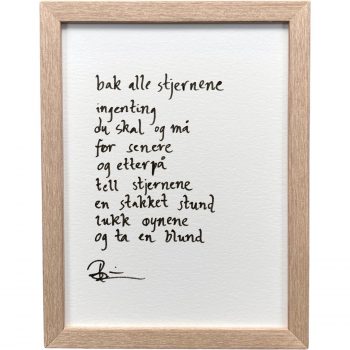 bak alle stjernene
ingenting
du skal og må
før senere
og etterpå
tell stjernene
en stakket stund
lukk øynene
og ta en blund